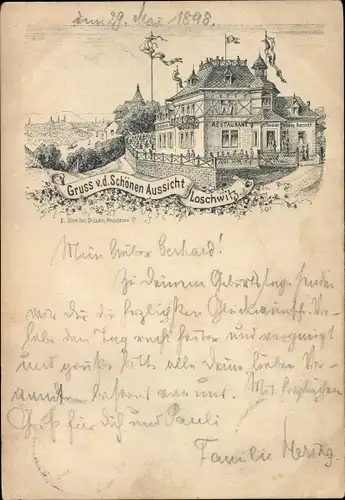 den 29. Mai 1898.
RESTAURANT
Gruss v.d. Schönen Aussicht
Loschwitz
Mein lieber Gerhard!
Zu deinem Geburtstage senden
wir dir die herzlichsten Glückwünsche. Ver-
lebe den Tag recht heiter und vergnügt
und grüße bitte alle deine lieben Ver-
wandten bestens von uns. Mit herzlichem
Gruß für dich und Pauli
Familie Herzog.